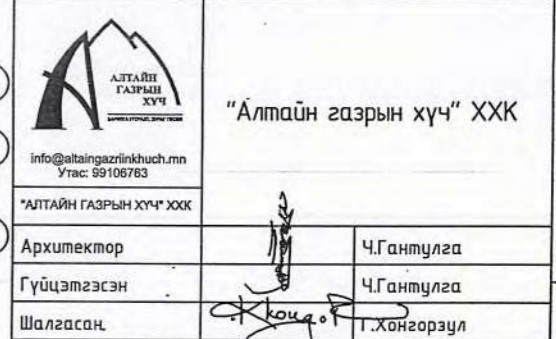 АЛТАЙН
ГАЗРЫН
ХҮЧ
info@altaingazriinkhuch.mn
Утас: 99106763
"АЛТАЙН ГАЗРЫН ХҮЧ" ХХК
"Алтайн газрын хүч" ХХК
Архитектор Ч.Гантулга
Гүйцэтгэсэн Ч.Гантулга
Шалгасан Г.Хонгорзул